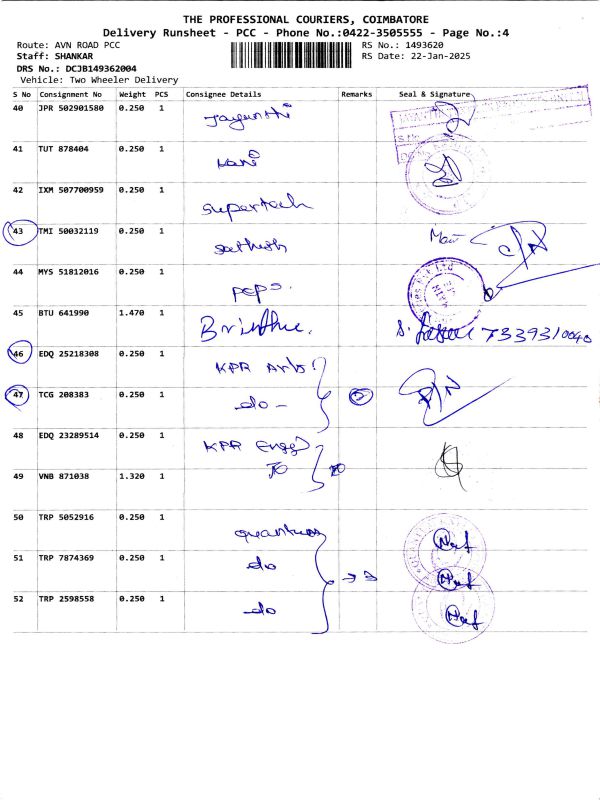 THE PROFESSIONAL COURIERS, COIMBATORE
Delivery Runsheet - PCC - Phone No.:0422-3505555 - Page No.:4
Route: AVN ROAD PCC RS No.: 1493620
Staff: SHANKAR RS Date: 22-Jan-2025
DRS No.: DCJB149362004
Vehicle: Two Wheeler Delivery
S No Consignment No Weight PCS Consignee Details Remarks Seal & Signature
40 JPR 502901580 0.250 1
41 TUT 878404 0.250 1 Mani
42 IXM 507700959 0.250 1 supertech
43 TMI 50032119 0.250 1 sathish
44 MYS 51812016 0.250 1 pops.
45 BTU 641990 1.470 1 7339310040
46 EDQ 25218308 0.250 1 KPR
47 TCG 208383 0.250 1 -do- 2
48 EDQ 23289514 0.250 1 KPR Engg
49 VNB 871038 1.320 1
50 TRP 5052916 0.250 1
51 TRP 7874369 0.250 1 -do → 3
52 TRP 2598558 0.250 1 -do